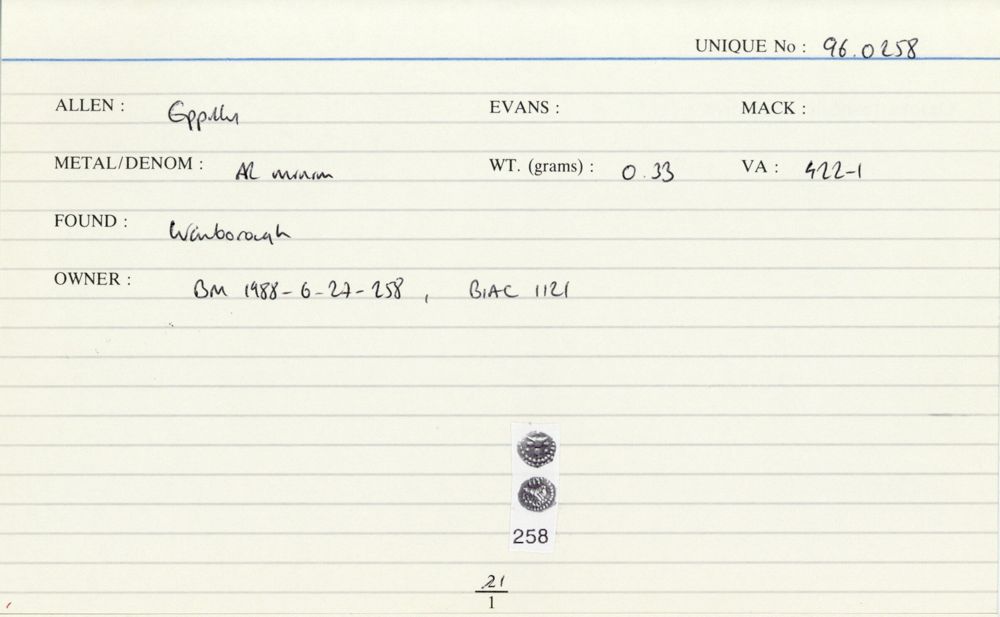 UNIQUE No : 96.0258
ALLEN : Eppillus EVANS : MACK :
METAL/DENOM : AR minim WT. (grams) : 0.33 VA : 422-1
FOUND : Wanborough
OWNER : BM 1988-6-27-258 , BIAC 1121
258
21
1